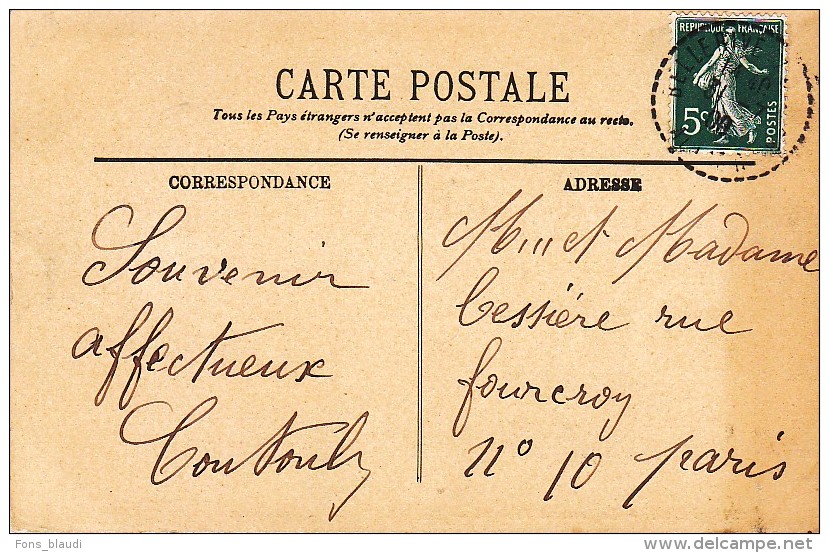 REPUBLIQUE FRANÇAISE
5c
POSTES
CARTE POSTALE
Tous les Pays étrangers n'acceptent pas la Correspondance au recto.
(Se renseigner à la Poste).
CORRESPONDANCE
Souvenir
affectueux
ADRESSE
et Madame
Cessière rue
fourcroy
n° 10 paris
Fons_blaudi
delcampe.net